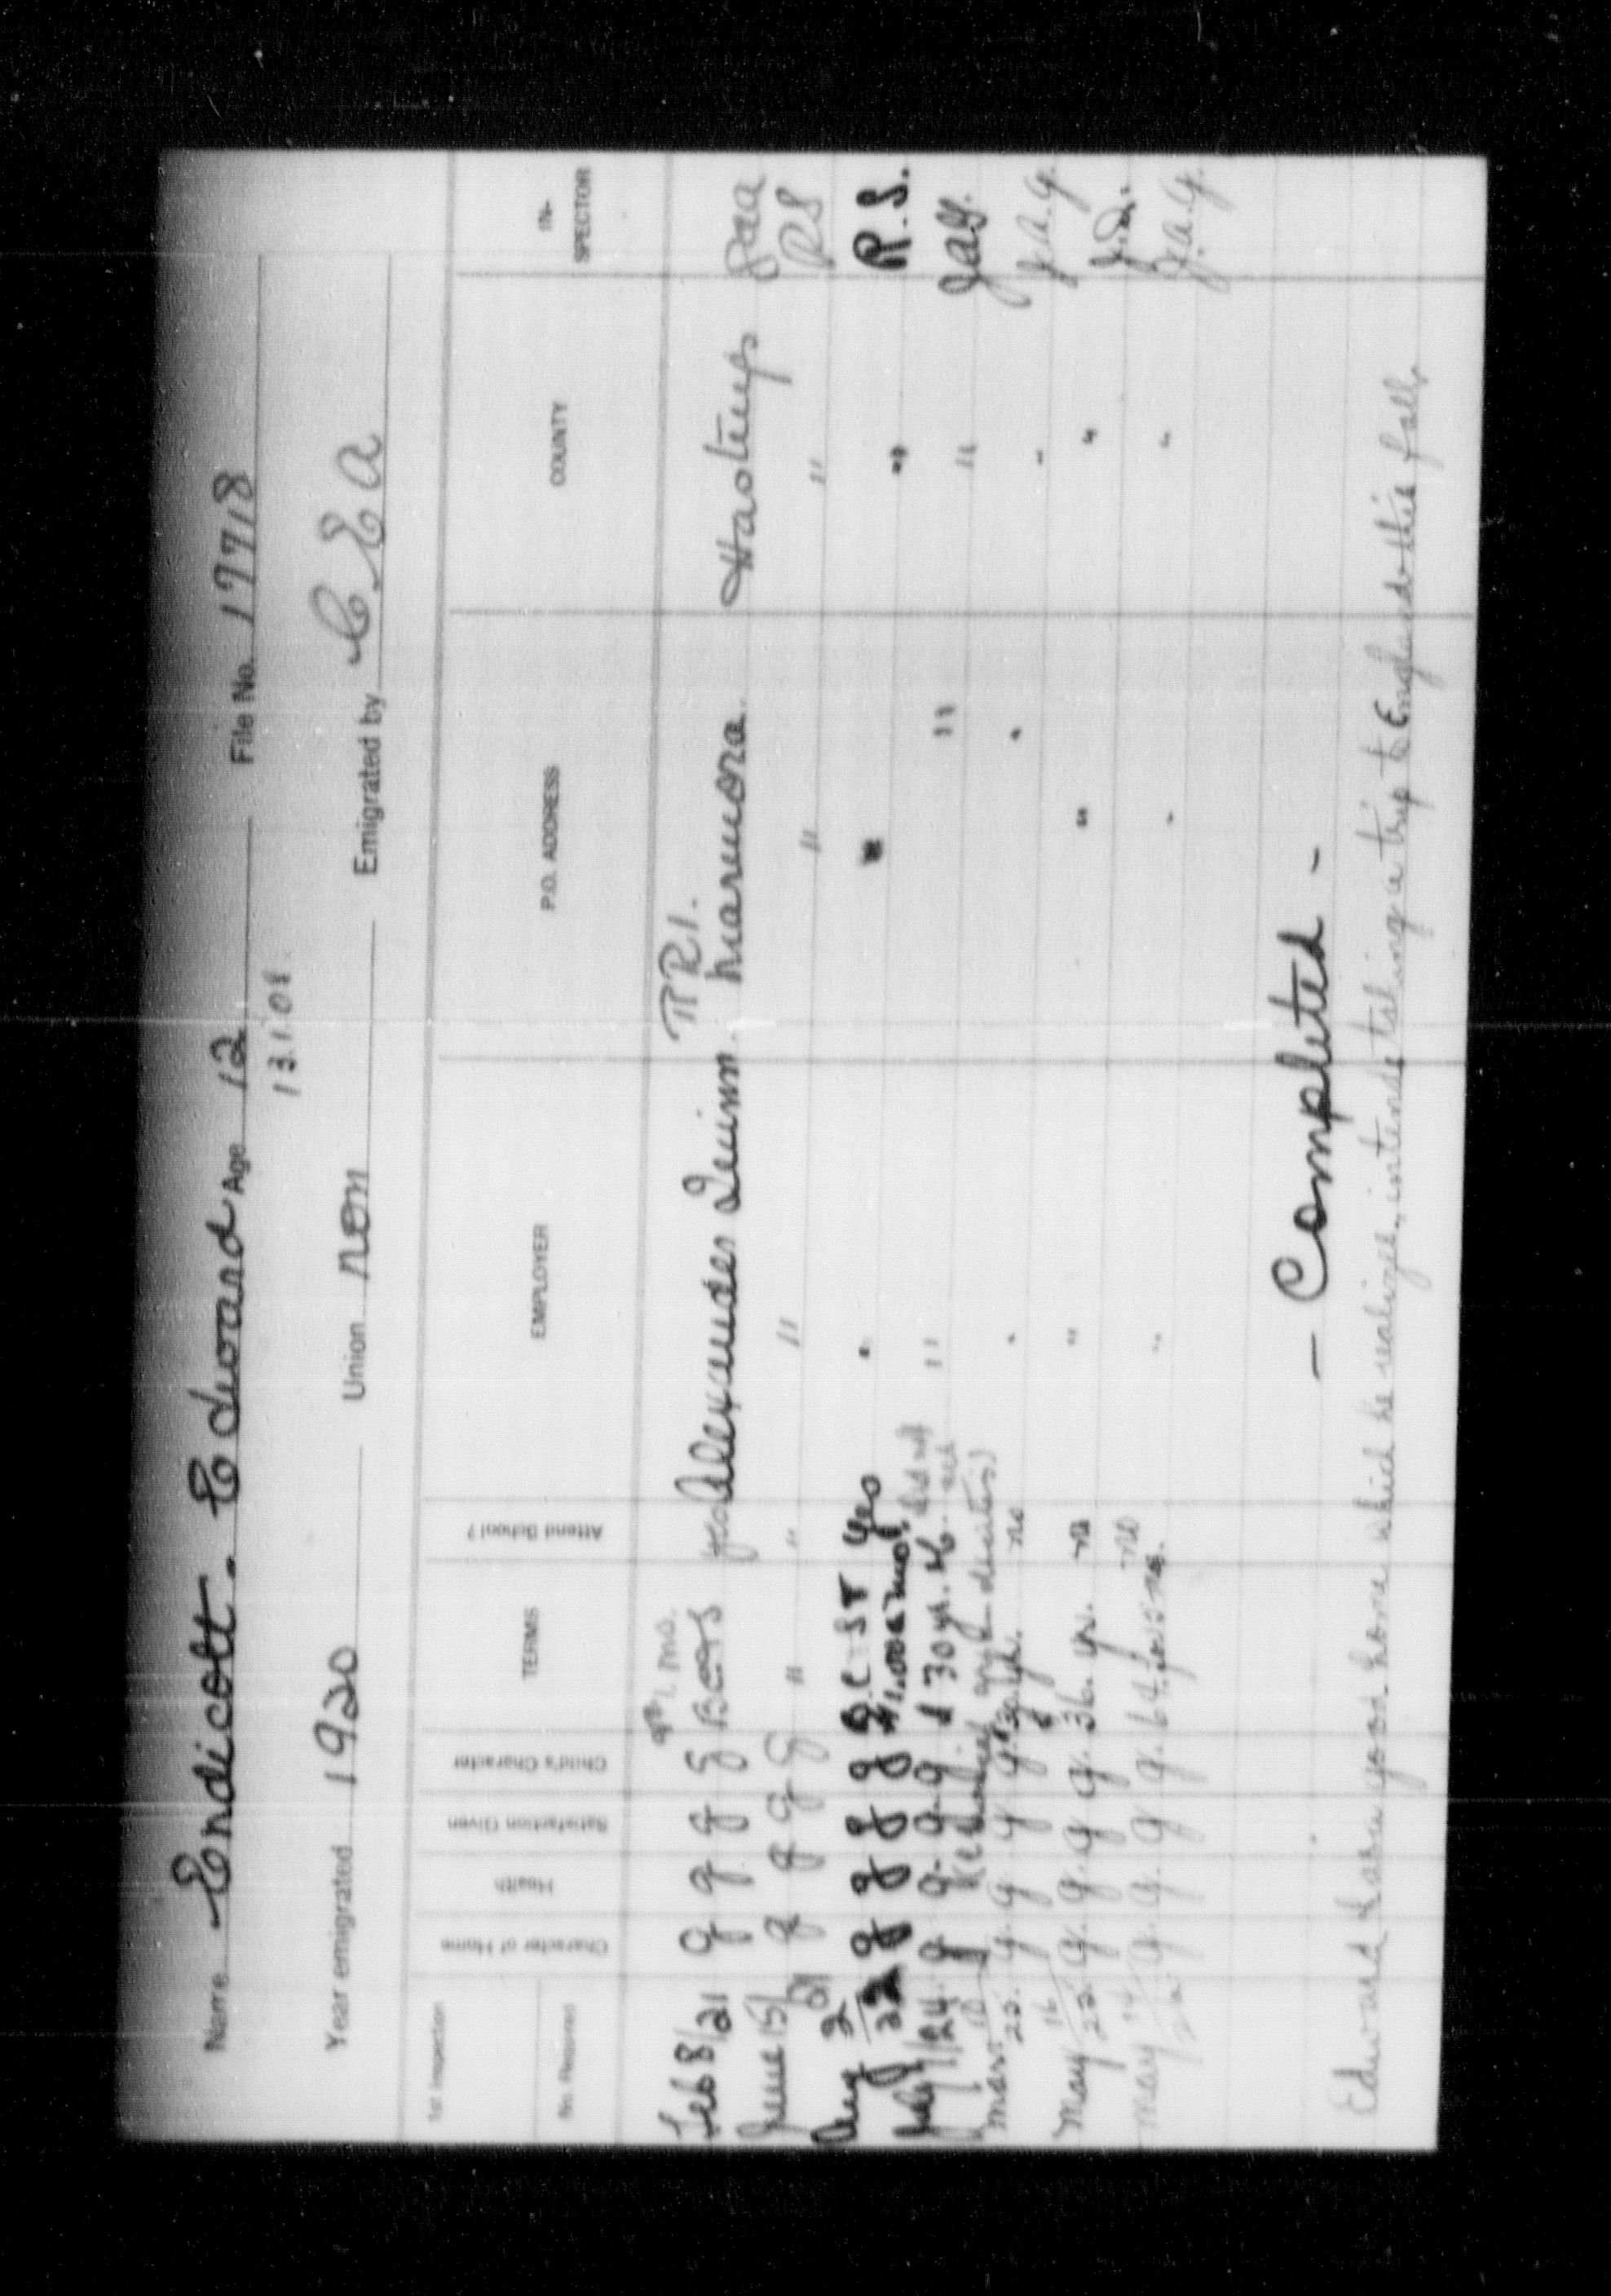 Name Endicott. Edward Age 12 File No. 17718
13.1.08.
Year emigrated 1920 Union Non Emigrated by C. E A
1st Inspection
No. Required
Character of Home
Health
Satisfaction Given
Child's Character
TERMS
Attend School?
EMPLOYER
P.O. ADDRESS
COUNTY
IN-
SPECTOR
mo. RR1.
Feb 8/21 g g g g Alexander Quinn Marmora Hastings
June 15/21 g g g g " " " " " RS
Aug 2/22 g g g g B.C ST Yes " " " R. S.
$1.00 a mo.
July 1/24. g g. g. g $30 yr. " " " JAG.
Mar. 10/25. g. g g g. yr. no " " " J.A.G.
May 16/25. g. g. g g. 36. yr. no " " "
May 14/26. g. g. g g. 64. no " " " J.A.G.
- Completed -
Edward has a good home which he realizes, intends taking a trip to England this fall.